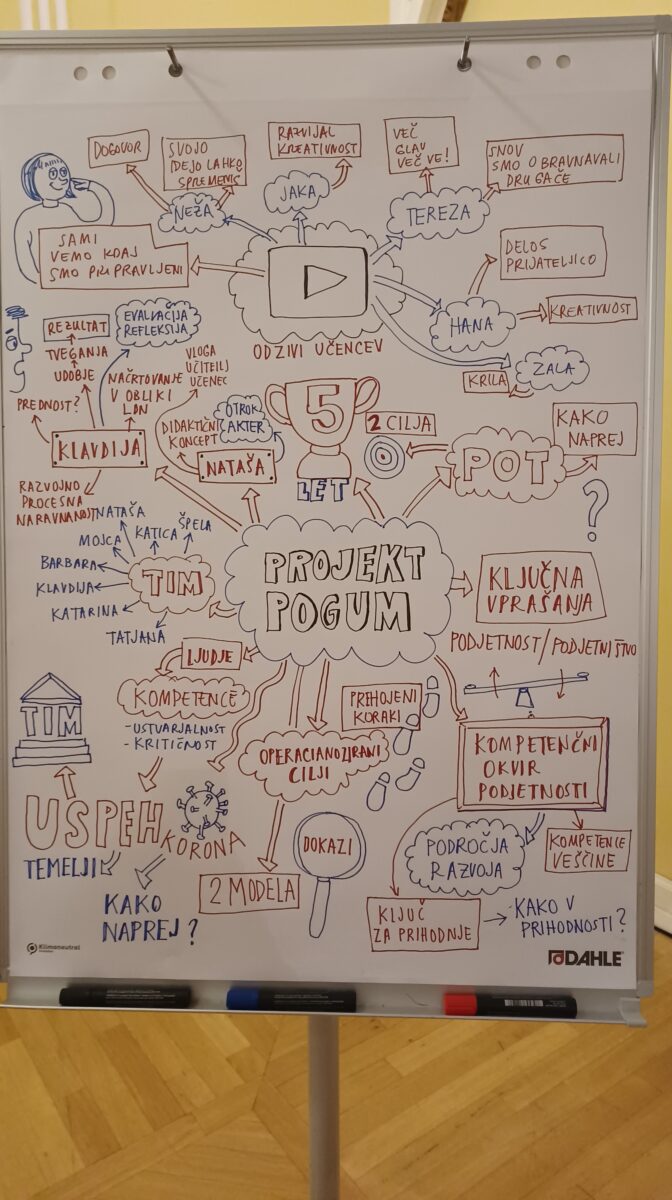 DOGOVOR
SVOJO
IDEJO LAHKO
SPREMENIŠ
RAZVIJAL
KREATIVNOST
VEČ
GLAV
VEČ VE!
SNOV
SMO OBRAVNAVALI
DRUGAČE
NEŽA
JAKA
TEREZA
SAMI
VEMO KDAJ
SMO PRIPRAVLJENI
DELOŠ
PRIJATELJICO
HANA
KREATIVNOST
ODZIVI UČENCEV
ZALA
KRILA
REZULTAT
TVEGANJA
UDOBJE
PREDNOST?
EVALVACIJA
REFLEKSIJA
NAČRTOVANJE
V OBLIKI
LDN
KLAVDIJA
RAZVOJNO
PROCESNA
NARAVNANOST
VLOGA
UČITELJ
UČENEC
DIDAKTIČNI
KONCEPT
OTROK
AKTER
NATAŠA
5
LET
2 CILJA
POT
KAKO
NAPREJ
?
PROJEKT
POGUM
TIM
NATAŠA
MOJCA
KATICA
ŠPELA
BARBARA
KLAVDIJA
KATARINA
TATJANA
KLJUČNA
VPRAŠANJA
PODJETNOST/PODJETNIŠTVO
LJUDJE
KOMPETENCE
- USTVARJALNOST
- KRITIČNOST
PREHOJENI
KORAKI
OPERACIANOZIRANI
CILJI
KOMPETENČNI
OKVIR
PODJETNOSTI
TIM
USPEH
TEMELJI
KAKO
NAPREJ?
KORONA
2 MODELA
DOKAZI
PODROČJA
RAZVOJA
KOMPETENCE
VEŠČINE
KLJUČ
ZA PRIHODNJE
KAKO V
PRIHODNOSTI?
Klimaneutral
DAHLE